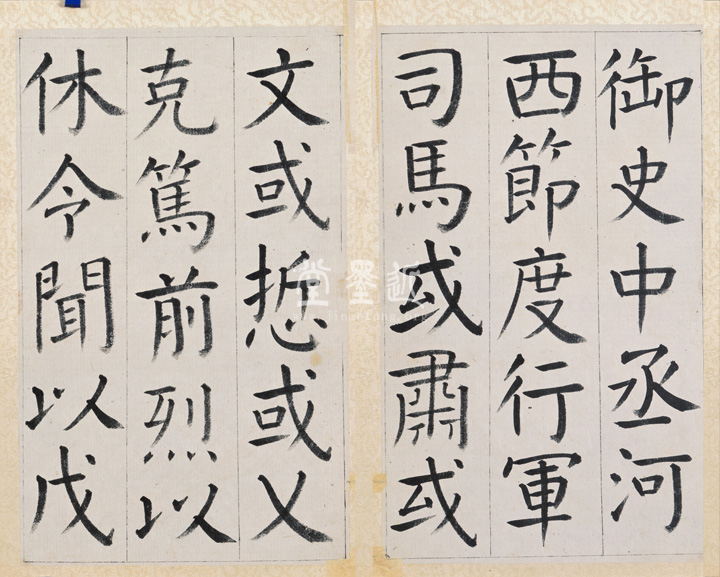 御史中丞河
西節度行軍
司馬或肅或
文或悊或乂
克篤前烈以
休令聞以戊
近墨堂